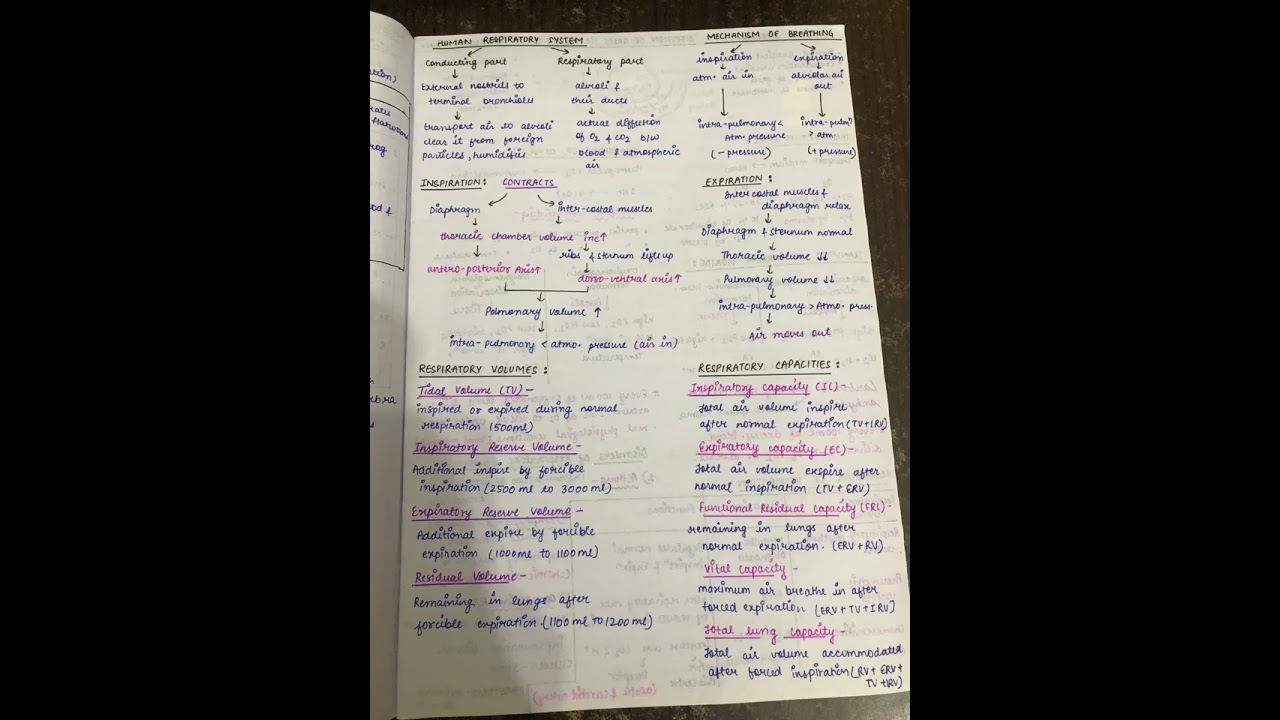 HUMAN RESPIRATORY SYSTEM
Conducting part
Respiratory part
External nostrils to
terminal bronchioles
alveoli &
their ducts
transport air to alveoli
clear it from foreign
particles, humidifies
actual diffusion
of O2 & CO2 b/w
blood & atmospheric
air
MECHANISM OF BREATHING
inspiration
expiration
atm. air in
alveolar air
out
intra-pulmonary <
Atm. pressure
(- pressure)
intra-pulm
> atm
(+ pressure)
INSPIRATION: CONTRACTS
Diaphragm
inter-costal muscles
thoracic chamber volume inc↑
antero-posterior Axis↑
ribs & sternum lifts up
dorso-ventral axis↑
Pulmonary volume ↑
intra-pulmonary < atmo. pressure (air in)
EXPIRATION:
Inter costal muscles &
diaphragm relax
Diaphragm & sternum normal
Thoracic volume ↓↓
Pulmonary volume ↓↓
intra-pulmonary > Atmo. press.
Air moves out
RESPIRATORY VOLUMES:
Tidal Volume (TV) -
inspired or expired during normal
respiration (500ml)
Inspiratory Reserve Volume -
Additional inspire by forcible
inspiration (2500 ml to 3000 ml)
Expiratory Reserve Volume -
Additional expire by forcible
expiration (1000ml to 1100 ml)
Residual Volume -
Remaining in lungs after
forcible expiration - (1100 ml to 1200 ml)
RESPIRATORY CAPACITIES:
Inspiratory capacity (IC) -
total air volume inspire
after normal expiration (TV+IRV)
Expiratory capacity (EC) -
total air volume expire after
normal inspiration (TV + ERV)
Functional Residual capacity (FRC) -
remaining in lungs after
normal expiration. (ERV + RV)
Vital capacity -
maximum air breathe in after
forced expiration [ERV + TV + IRV]
Total lung capacity -
total air volume accommodated
after forced inspiration [RV + ERV +
TV + IRV]